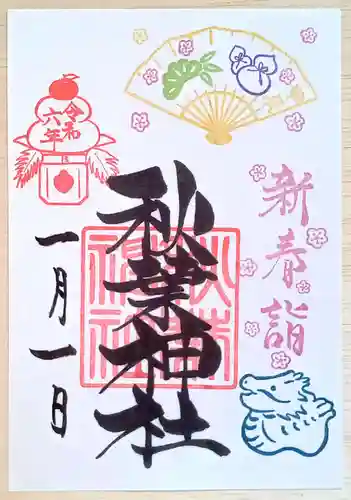 新春詣
秋葉神社
秋葉神社
令和
六年
一月一日